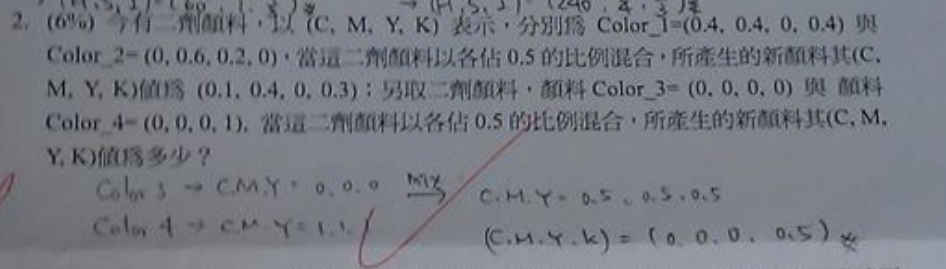 2. (6%) 今有二劑顏料，以 (C, M, Y, K) 表示，分別為 Color_1=(0.4, 0.4, 0, 0.4) 與
Color_2= (0, 0.6, 0.2, 0)，當這二劑顏料以各佔 0.5 的比例混合，所產生的新顏料其(C,
M, Y, K)值為 (0.1, 0.4, 0, 0.3)；另取二劑顏料，顏料 Color_3= (0, 0, 0, 0) 與 顏料
Color_4= (0, 0, 0, 1), 當這二劑顏料以各佔 0.5 的比例混合，所產生的新顏料其(C, M,
Y, K)值為多少？
Color 3 → C.M.Y = 0.0.0 mix → C.M.Y = 0.5、0.5、0.5
Color 4 → C.M.Y = 1.1.
(C.M.Y.K) = (0.0.0.0.5)